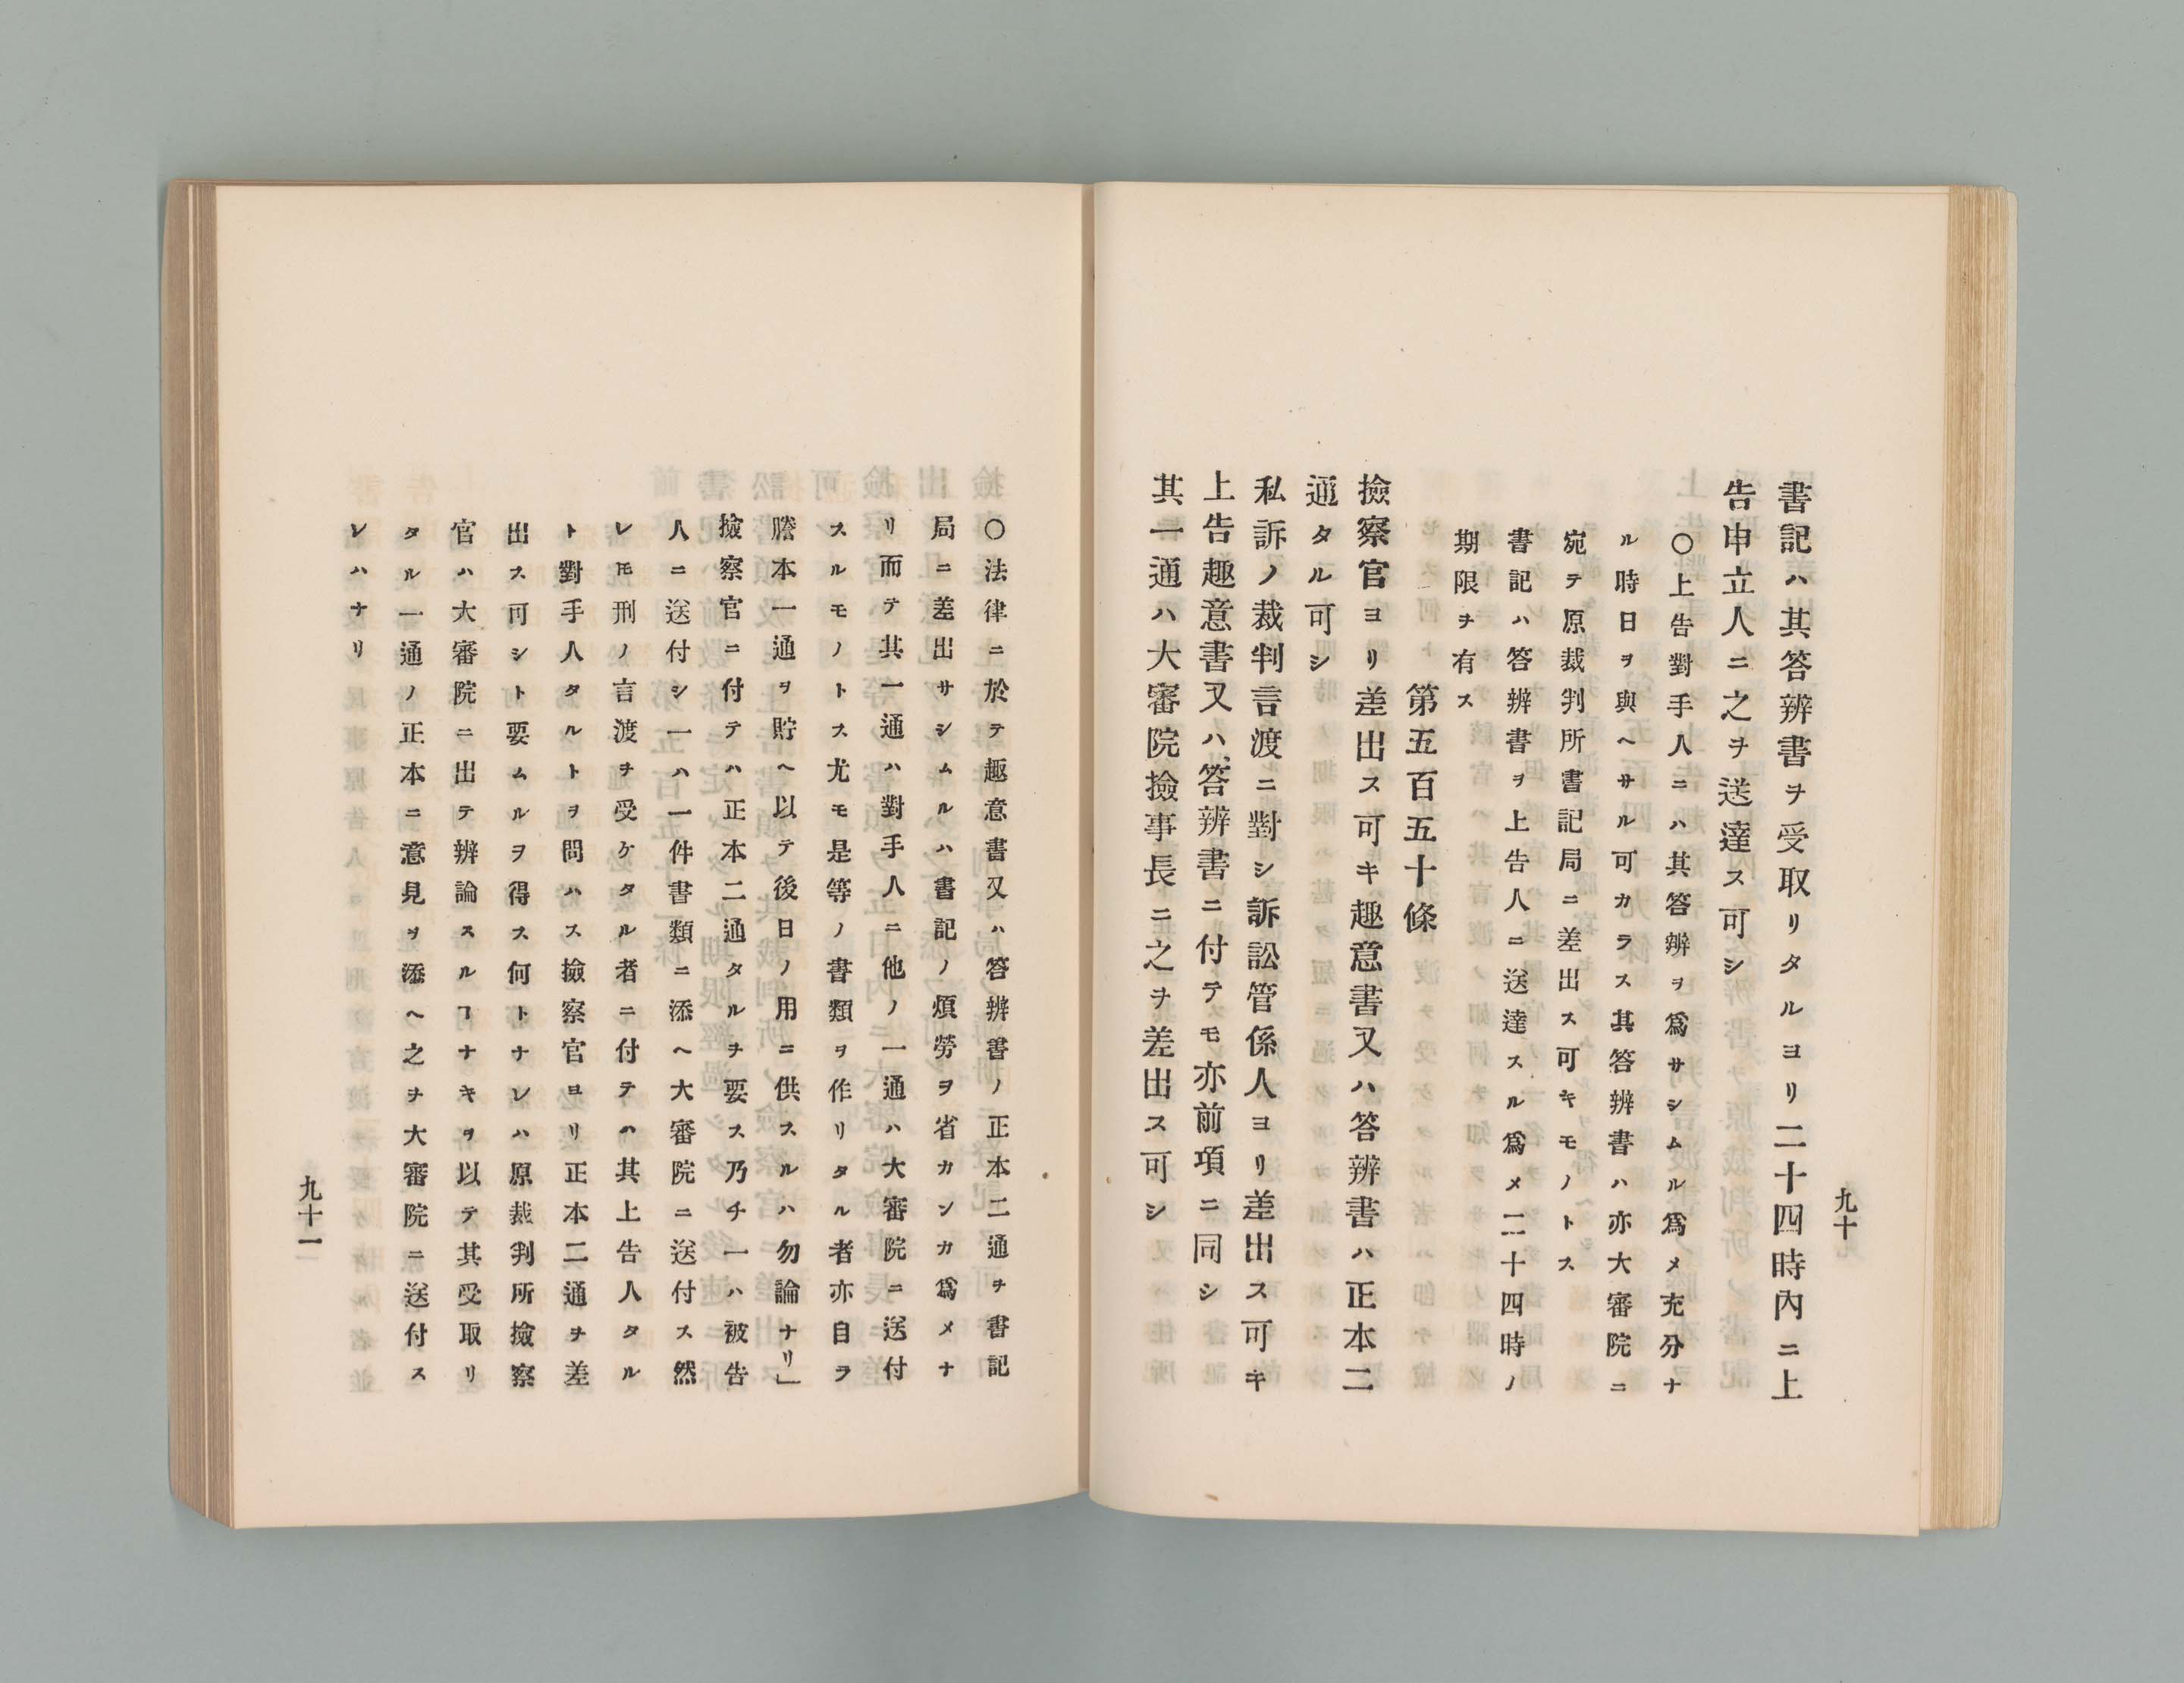 九十
書記ハ其答辨書ヲ受取リタルヨリ二十四時內ニ上
告申立人ニ之ヲ送達ス可シ
〇上告對手人ニハ其答辨ヲ爲サシムル爲メ充分ナ
ル時日ヲ與ヘサル可カラス其答辨書ハ亦大審院ニ
宛テ原裁判所書記局ニ差出ス可キモノトス
書記ハ答辨書ヲ上告人ニ送達スル爲メ二十四時ノ
期限ヲ有ス
第五百五十條
撿察官ヨリ差出ス可キ趣意書又ハ答辨書ハ正本二
通タル可シ
私訴ノ裁判言渡ニ對シ訴訟管係人ヨリ差出ス可キ
上告趣意書又ハ答辨書ニ付テモ亦前項ニ同シ
其一通ハ大審院撿事長ニ之ヲ差出ス可シ
〇法律ニ於テ趣意書又ハ答辨書ノ正本二通ヲ書記
局ニ差出サシムルハ書記ノ煩勞ヲ省カンカ爲メナ
リ而テ其一通ハ對手人ニ他ノ一通ハ大審院ニ送付
スルモノトス尤モ是等ノ書類ヲ作リタル者亦自ラ
謄本一通ヲ貯ヘ以テ後日ノ用ニ供スルハ勿論ナリ」
撿察官ニ付テハ正本二通タルヲ要ス乃チ一ハ被告
人ニ送付シ一ハ一件書類ニ添ヘ大審院ニ送付ス然
レモ刑ノ言渡ヲ受ケタル者ニ付テハ其上告人タル
ト對手人タルトヲ問ハス撿察官ヨリ正本二通ヲ差
出ス可シト要ムルヲ得ス何トナレハ原裁判所撿察
官ハ大審院ニ出テ辨論スルヿナキヲ以テ其受取リ
タル一通ノ正本ニ意見ヲ添ヘ之ヲ大審院ニ送付ス
レハナリ
九十一